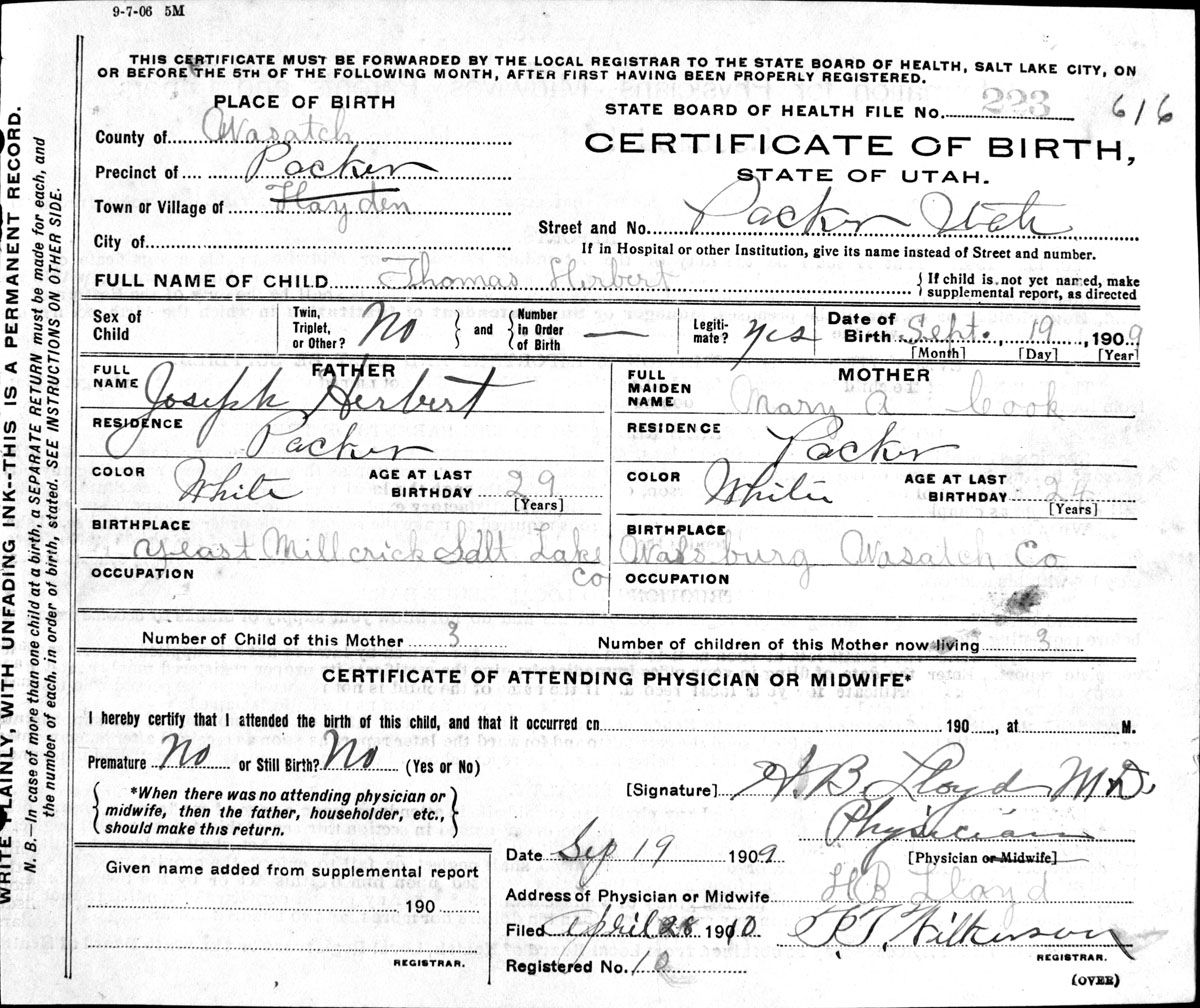 9-7-06 5M
THIS CERTIFICATE MUST BE FORWARDED BY THE LOCAL REGISTRAR TO THE STATE BOARD OF HEALTH, SALT LAKE CITY, ON
OR BEFORE THE 5TH OF THE FOLLOWING MONTH, AFTER FIRST HAVING BEEN PROPERLY REGISTERED.
PLACE OF BIRTH
STATE BOARD OF HEALTH FILE No. 223 616
County of Wasatch
CERTIFICATE OF BIRTH,
Precinct of Packer
STATE OF UTAH.
Town or Village of Hayden
Street and No. Packer Utah
City of
If in Hospital or other Institution, give its name instead of Street and number.
FULL NAME OF CHILD Thomas Herbert
{ If child is not yet named, make
supplemental report, as directed
Sex of
Child
Twin,
Triplet,
or Other? No } and { Number
In Order
of Birth —
Legiti-
mate? yes
Date of
Birth Sept. 19, 1909
[Month] [Day] [Year]
FATHER
FULL
NAME Joseph Herbert
MOTHER
FULL
MAIDEN
NAME Mary A Cook
RESIDENCE Packer
RESIDENCE Packer
COLOR White
AGE AT LAST
BIRTHDAY 29
[Years]
COLOR White
AGE AT LAST
BIRTHDAY 24
[Years]
BIRTHPLACE
East Millcrick Salt Lake
Co
BIRTHPLACE
Walsburg Wasatch Co
OCCUPATION
OCCUPATION
Number of Child of this Mother 3
Number of children of this Mother now living 3
CERTIFICATE OF ATTENDING PHYSICIAN OR MIDWIFE*
I hereby certify that I attended the birth of this child, and that it occurred on 190 , at M.
Premature No or Still Birth? No (Yes or No)
[Signature] H. B. Lloyd M D.
{ *When there was no attending physician or
midwife, then the father, householder, etc.,
should make this return. }
Physician
Date Sep 19 1909 [Physician or Midwife]
Given name added from supplemental report
Address of Physician or Midwife H B Lloyd
190
Filed April 28 1910 R T. Wilkerson
REGISTRAR.
REGISTRAR.
Registered No. 10
(OVER)
WRITE PLAINLY, WITH UNFADING INK--THIS IS A PERMANENT RECORD.
N. B.—In case of more than one child at a birth, a SEPARATE RETURN must be made for each, and
the number of each, in order of birth, stated. SEE INSTRUCTIONS ON OTHER SIDE.